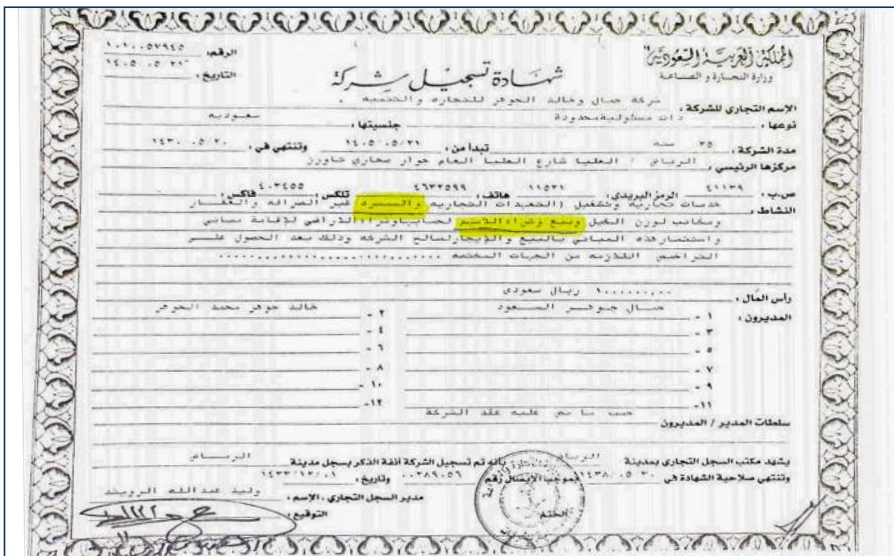 المملكة العربية السعودية
وزارة التجارة و الصناعة
شهادة تسجيل شركة
الرقم، ١٠١٠٠٥٧٩٤٥
التاريخ، ١٤٠٥٠٥٢١
الإسم التجاري للشركة، شركة جمال وخالد الجوهر للتجارة
نوعها، ذات مسئولية محدودة جنسيتها، سعودية
مدة الشركة، ٢٥ سنة تبدأ من، ١٤٠٥/٠٥/٢١ وتنتهي في، ١٤٣٠٠٥٢٠
مركزها الرئيسي، الرياض / العليا شارع العليا العام جوار صحاري تاورز
ص.ب، ٤١١٣٩ الرمز البريدي، ١١٥٢١ هاتف، ٤٦٣٢٥٩٩ تلكس، ٤٠٣٤٥٥ فاكس،
النشاط، خدمات تجارية وتشغيل (التعهدات التجارية والسمسره غير الصرافه والعقار
ومكاتب لوزن الكيل وبيع وشراء الاسهم لحسابها وشراء الاراضي لإقامة مباني
واستثمار هذه المباني بالبيع والإيجار لصالح الشركه وذلك بعد الحصول على
التراخيص اللازمه من الجهات المختصه
رأس المال، ريال سعودى
المديرون، ١- جمال جوهر ٢- خالد جوهر محمد الجوهر
٣- ٤-
٥- ٦-
٧- ٨-
٩- ١٠-
١١- ١٢-
سلطات المدير / المديرون حسب ما نص عليه عقد الشركة
يشهد مكتب السجل التجاري بمدينة الرياض بأنه تم تسجيل الشركة آنفة الذكر بسجل مدينة الرياض
وتنتهي صلاحية الشهادة في ١٤٣٨/٠٥/٣٠ بموجب الإيصال رقم ٠٠٢٨٩٠٥٦ وتاريخ، ١٤٣٣/١٢/٠١
مدير السجل التجاري، الإسم، وليد عبدالله الرويشد
الختم التوقيع،